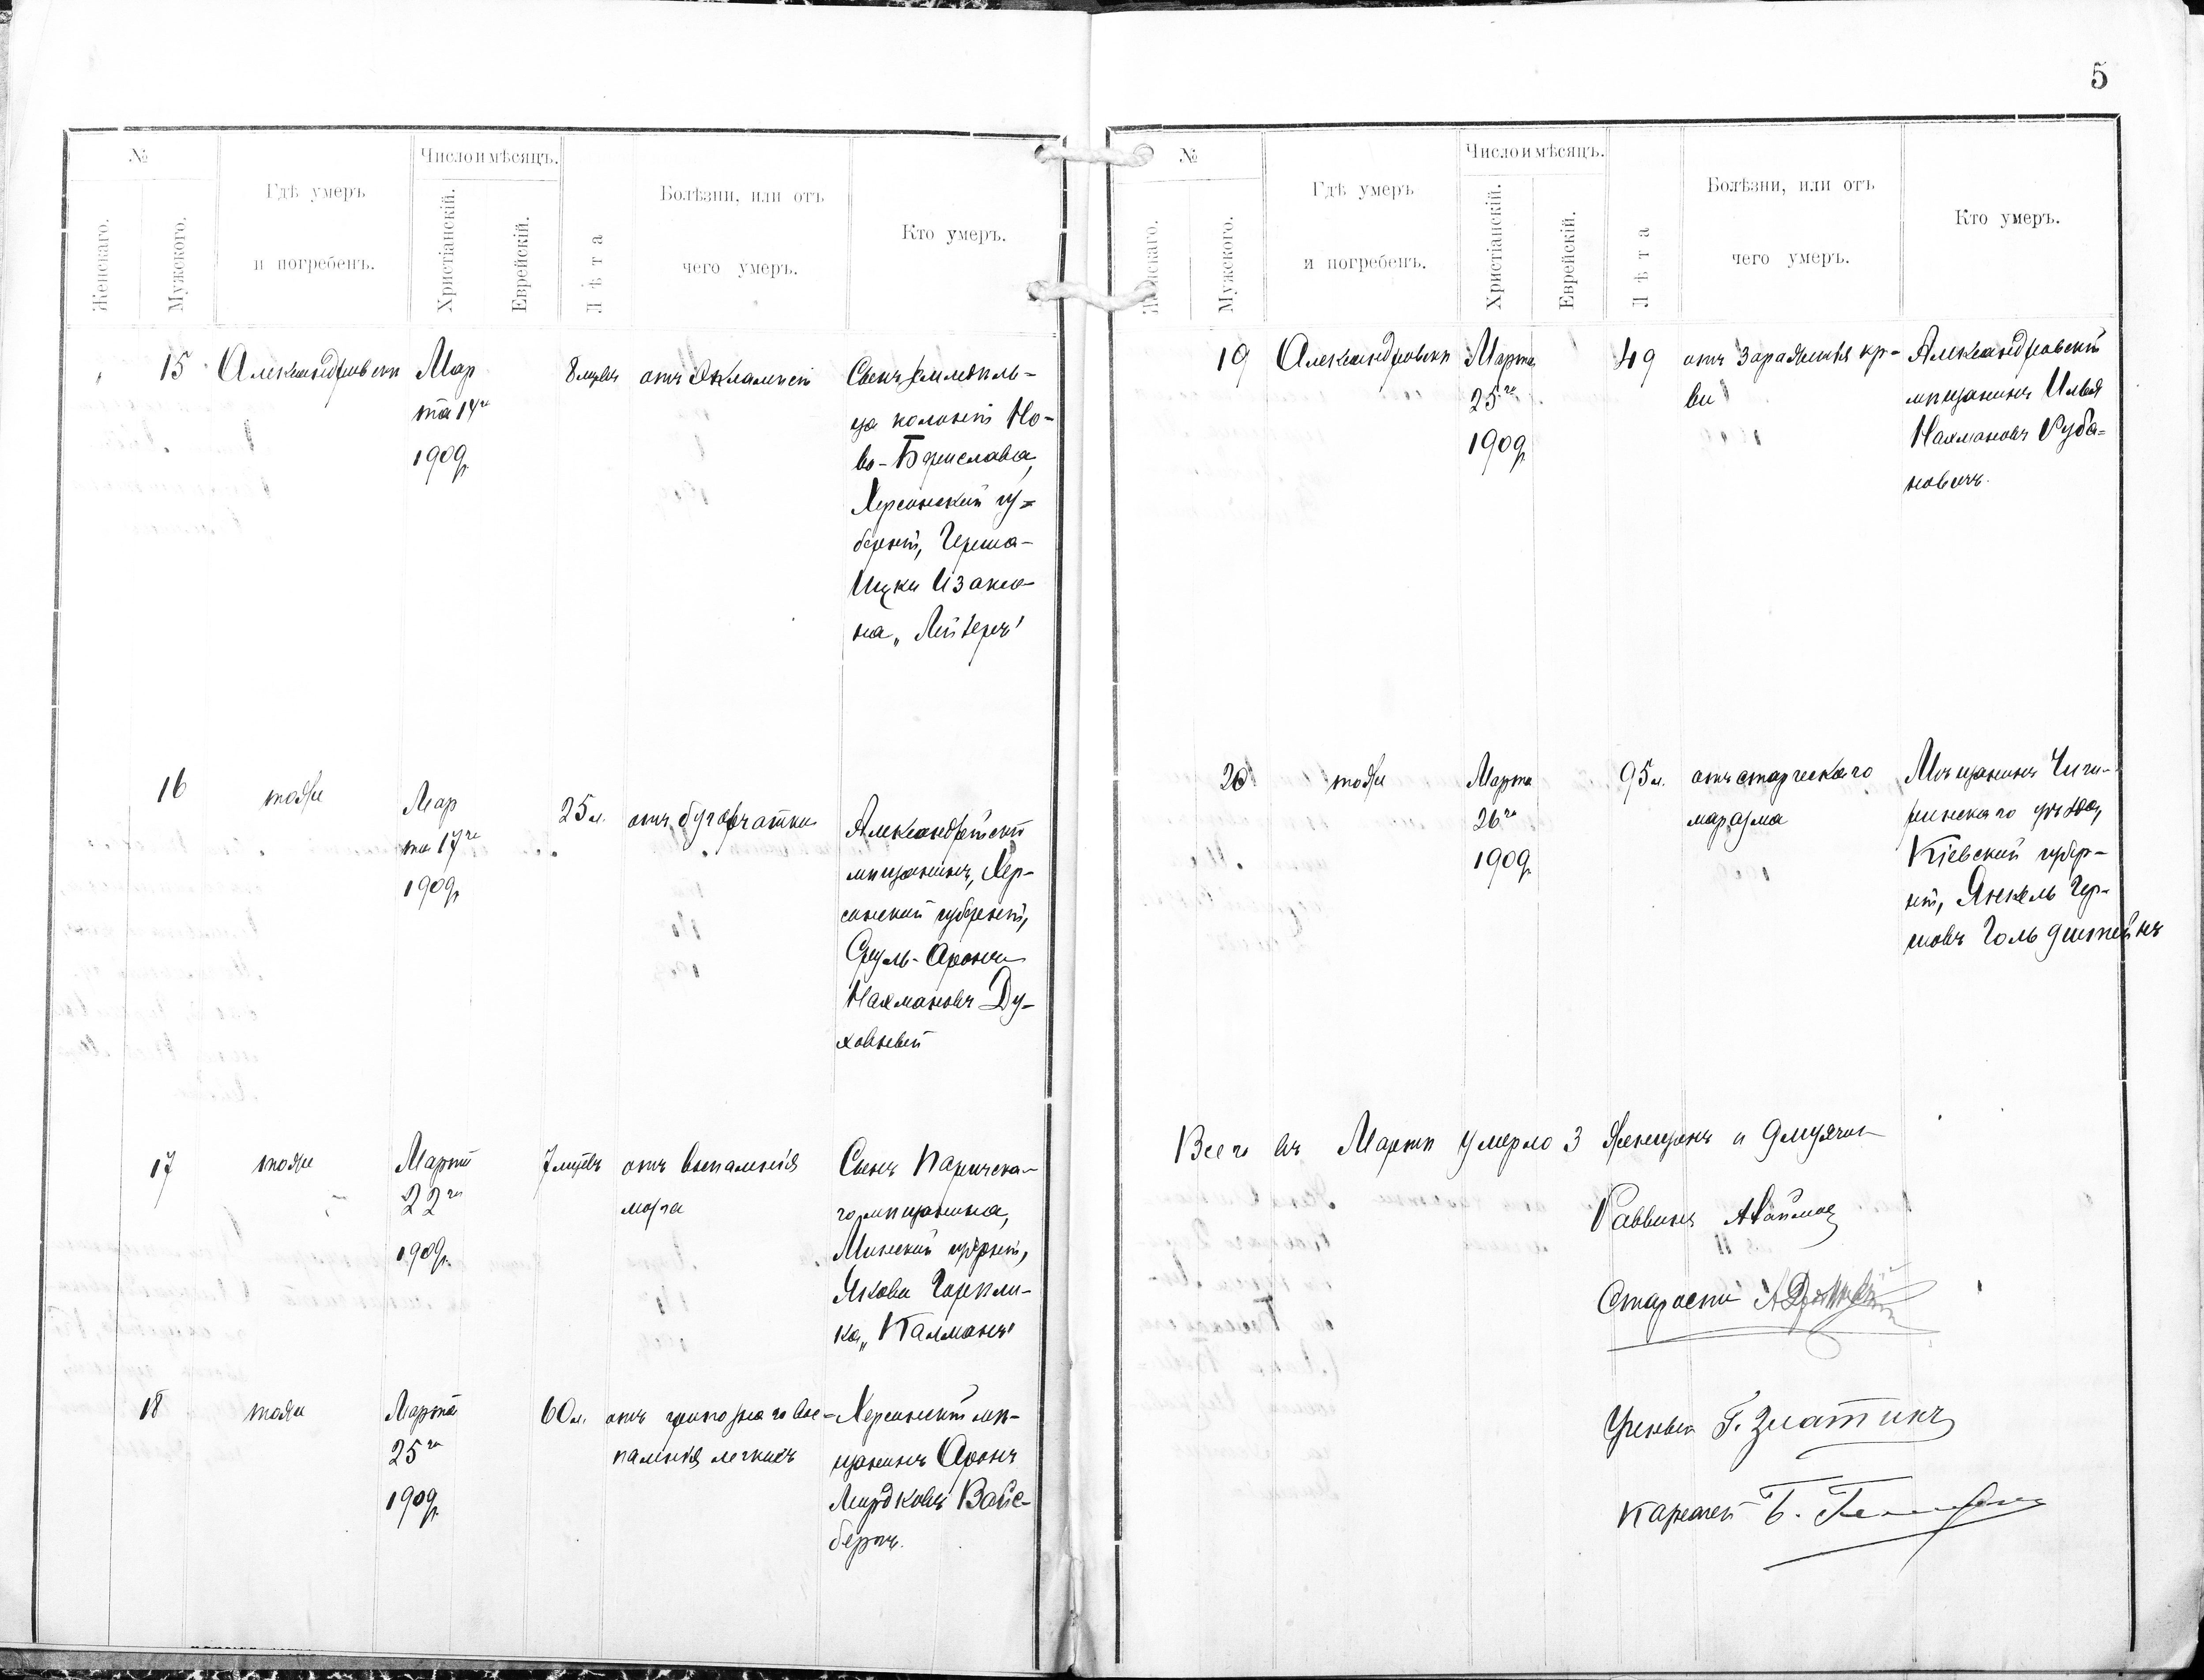 5
№
Гдѣ умеръ
и погребенъ.
Число и мѣсяцъ.
Женскаго.
Мужского.
Христіанскій.
Еврейскій.
Лѣта
Болѣзни, или отъ
чего умеръ.
Кто умеръ.
15 Александровскъ Мар
та 14го
1909г.
8 мцевъ отъ Эклампсіи
Сынъ
ца колоніи Но-
во-Бериславa,
Херсонской гу-
берніи, Герша-
Ицки Изаксо-
на, „Лейзеръ"
16 тоже Мар
та 17го
1909г.
25 л. отъ бугорчатки
Александрійскій
мѣщанинъ, Хер-
сонской губерніи,
Сруль-Аронъ
Нахмановъ Ду-
ховный
17 тоже Марта
22го
1909г.
7 мцевъ отъ воспаленія
мозга
Сынъ Паричска-
го мѣщанина,
Минской губерніи,
Якова Горели-
ка, „Калманъ"
18 тоже Марта
25го
1909г.
60 л. отъ крупознаго вос-
паленія легкихъ
Херсонскій мѣ-
щанинъ Аронъ
Мордковъ Вайс-
бергъ.
№
Гдѣ умеръ
и погребенъ.
Число и мѣсяцъ.
Женскаго.
Мужского.
Христіанскій.
Еврейскій.
Лѣта
Болѣзни, или отъ
чего умеръ.
Кто умеръ.
19 Александровскъ Марта
25го
1909г.
49 отъ зараженія кро-
ви
Александровскій
мѣщанинъ Илья
Нахмановъ Руба-
новичъ.
20 тоже Марта
26го
1909г.
95 л. отъ старческаго
маразма
Мѣщанинъ Чиги-
ринскаго уѣзда,
Кіевской губер-
ніи, Янкель Гер-
шовъ Гольдштейнъ
Всего въ Мартѣ умерло 3 женщинъ и 9 мужчин
Раввинъ
Староста
Ученый Г. Златикъ
Казначей Б.